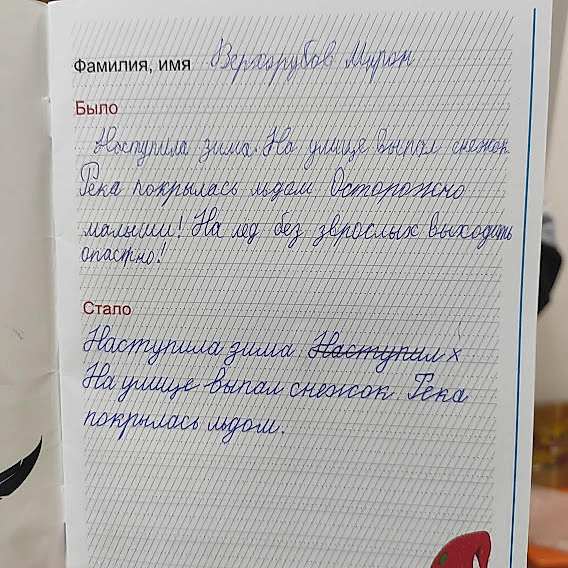 Фамилия, имя Верхорубов Мирон
Было
Наступила зима. На улице выпал снежок.
Река покрылась льдом Осторожно
малыши! На лед без зврослых выходить
опастно!
Стало
Наступила зима Наступил х
На улице выпал снежок Река
покрылась льдом.